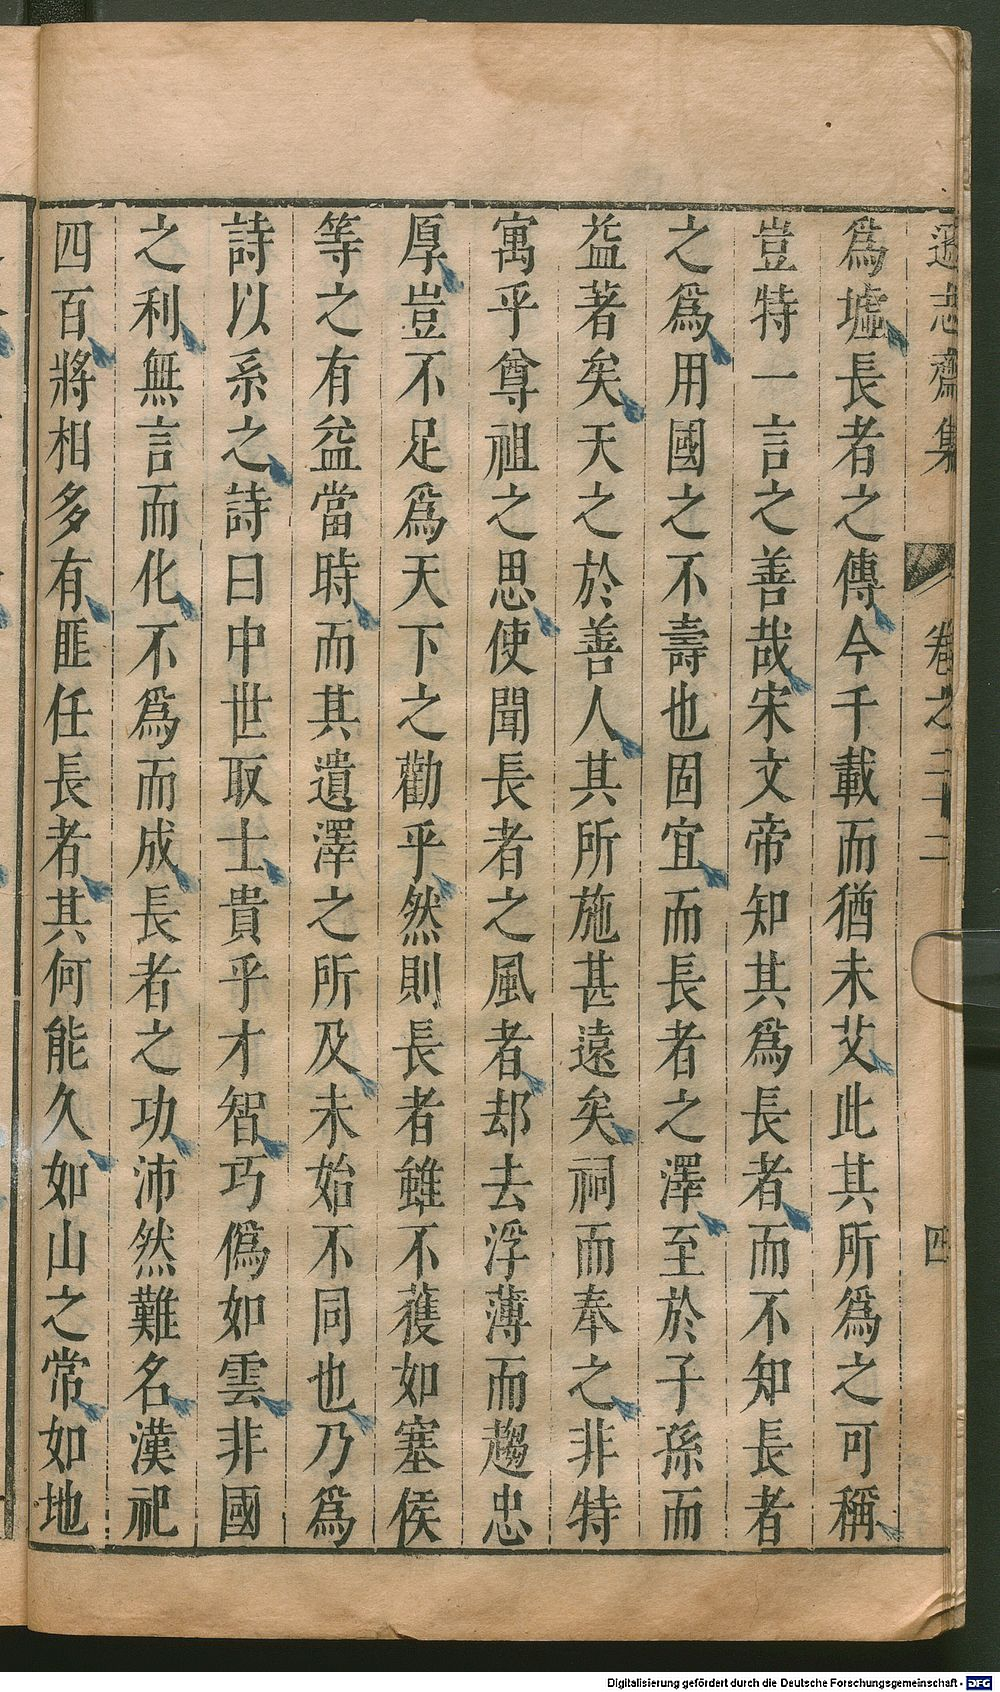 遜志齋集 卷之二十二 四
爲墟長者之傳今千載而猶未艾此其所爲之可稱
豈特一言之善哉宋文帝知其爲長者而不知長者
之爲用國之不壽也固宜而長者之澤至於子孫而
益著矣天之於善人其所施甚遠矣祠而奉之非特
寓乎尊祖之思使聞長者之風者却去浮薄而趨忠
厚豈不足爲天下之勸乎然則長者雖不獲如塞侯
等之有益當時而其遺澤之所及未始不同也乃爲
詩以系之詩曰中世取士貴乎才智巧僞如雲非國
之利無言而化不爲而成長者之功沛然難名漢祀
四百將相多有匪任長者其何能久如山之常如地
Digitalisierung gefördert durch die Deutsche Forschungsgemeinschaft - DFG